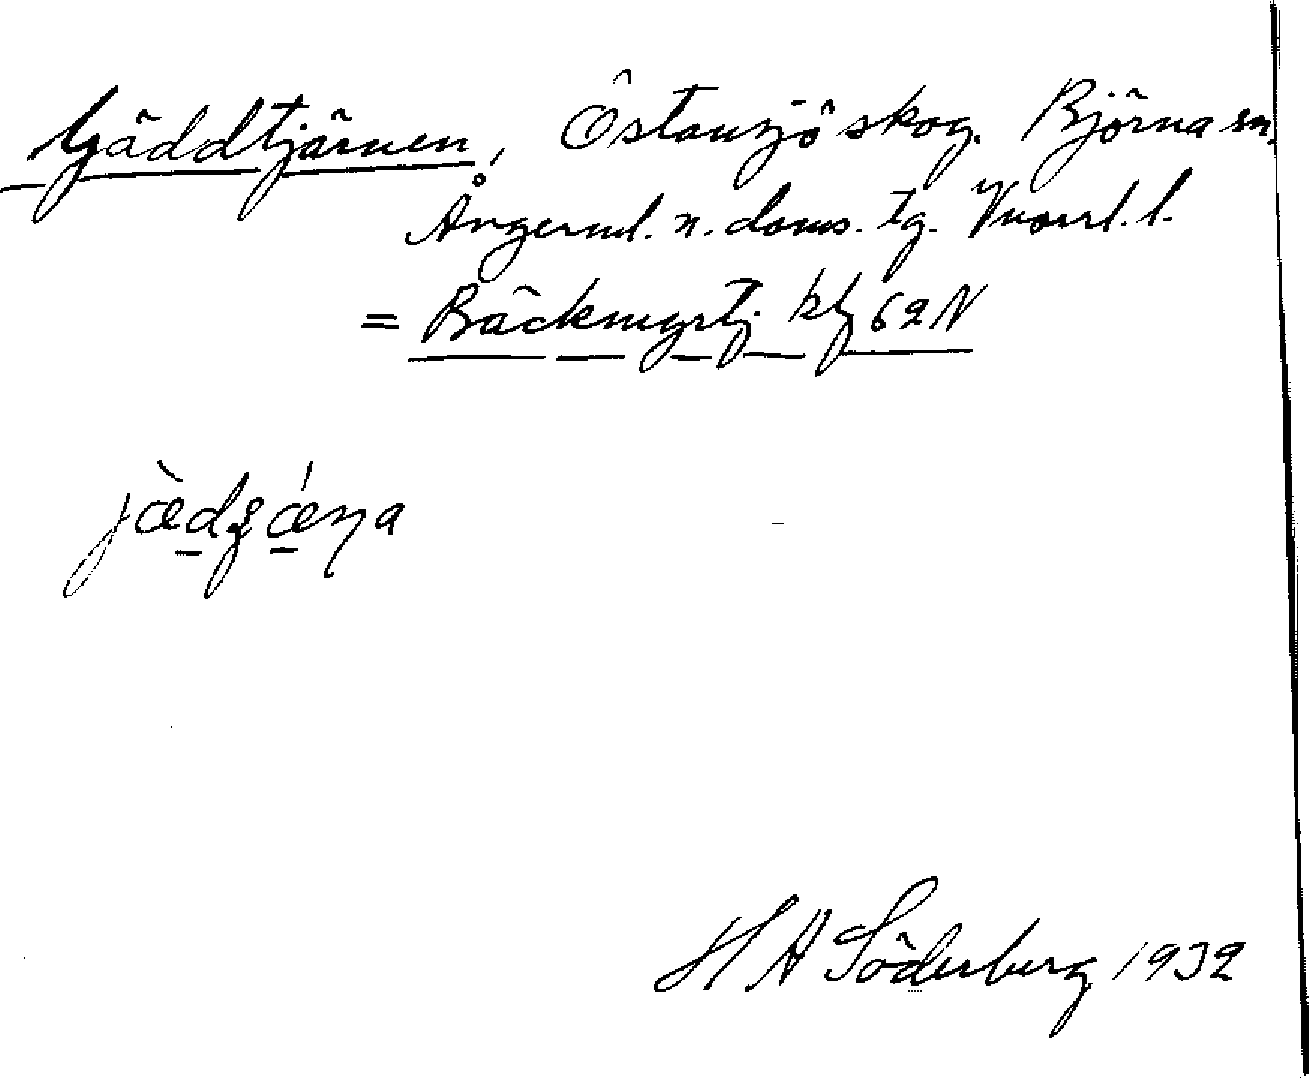 Gäddtjärnen, Östansjö skog. Björna sn.
Ångerml. n. doms. tg. Vnorrl. l.
= Bäckmyrtj. kbl 62 N
H A Söderberg 1932